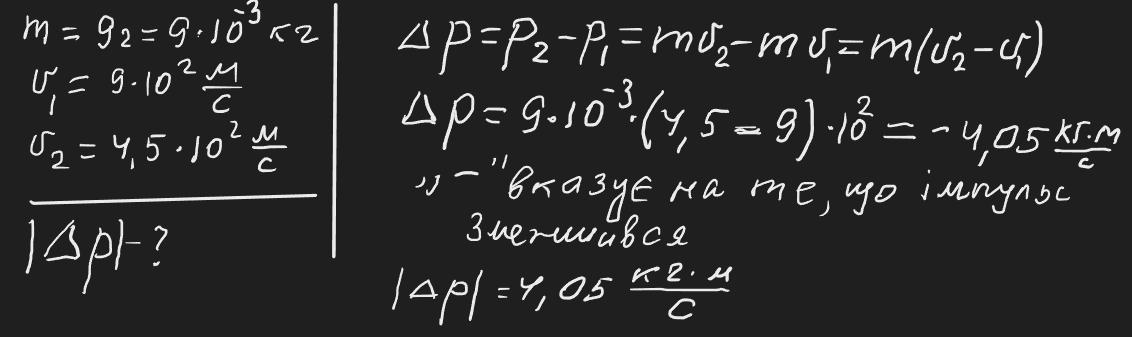 m = 9г = 9·10⁻³ кг
υ₁ = 9·10² м/с
υ₂ = 4,5·10² м/с
|Δp| - ?
Δp = p₂ - p₁ = mυ₂ - mυ₁ = m(υ₂ - υ₁)
Δp = 9·10⁻³·(4,5 - 9)·10² = -4,05 кг·м/с
„-" вказує на те, що імпульс
зменшився
|Δp| = 4,05 кг·м/с